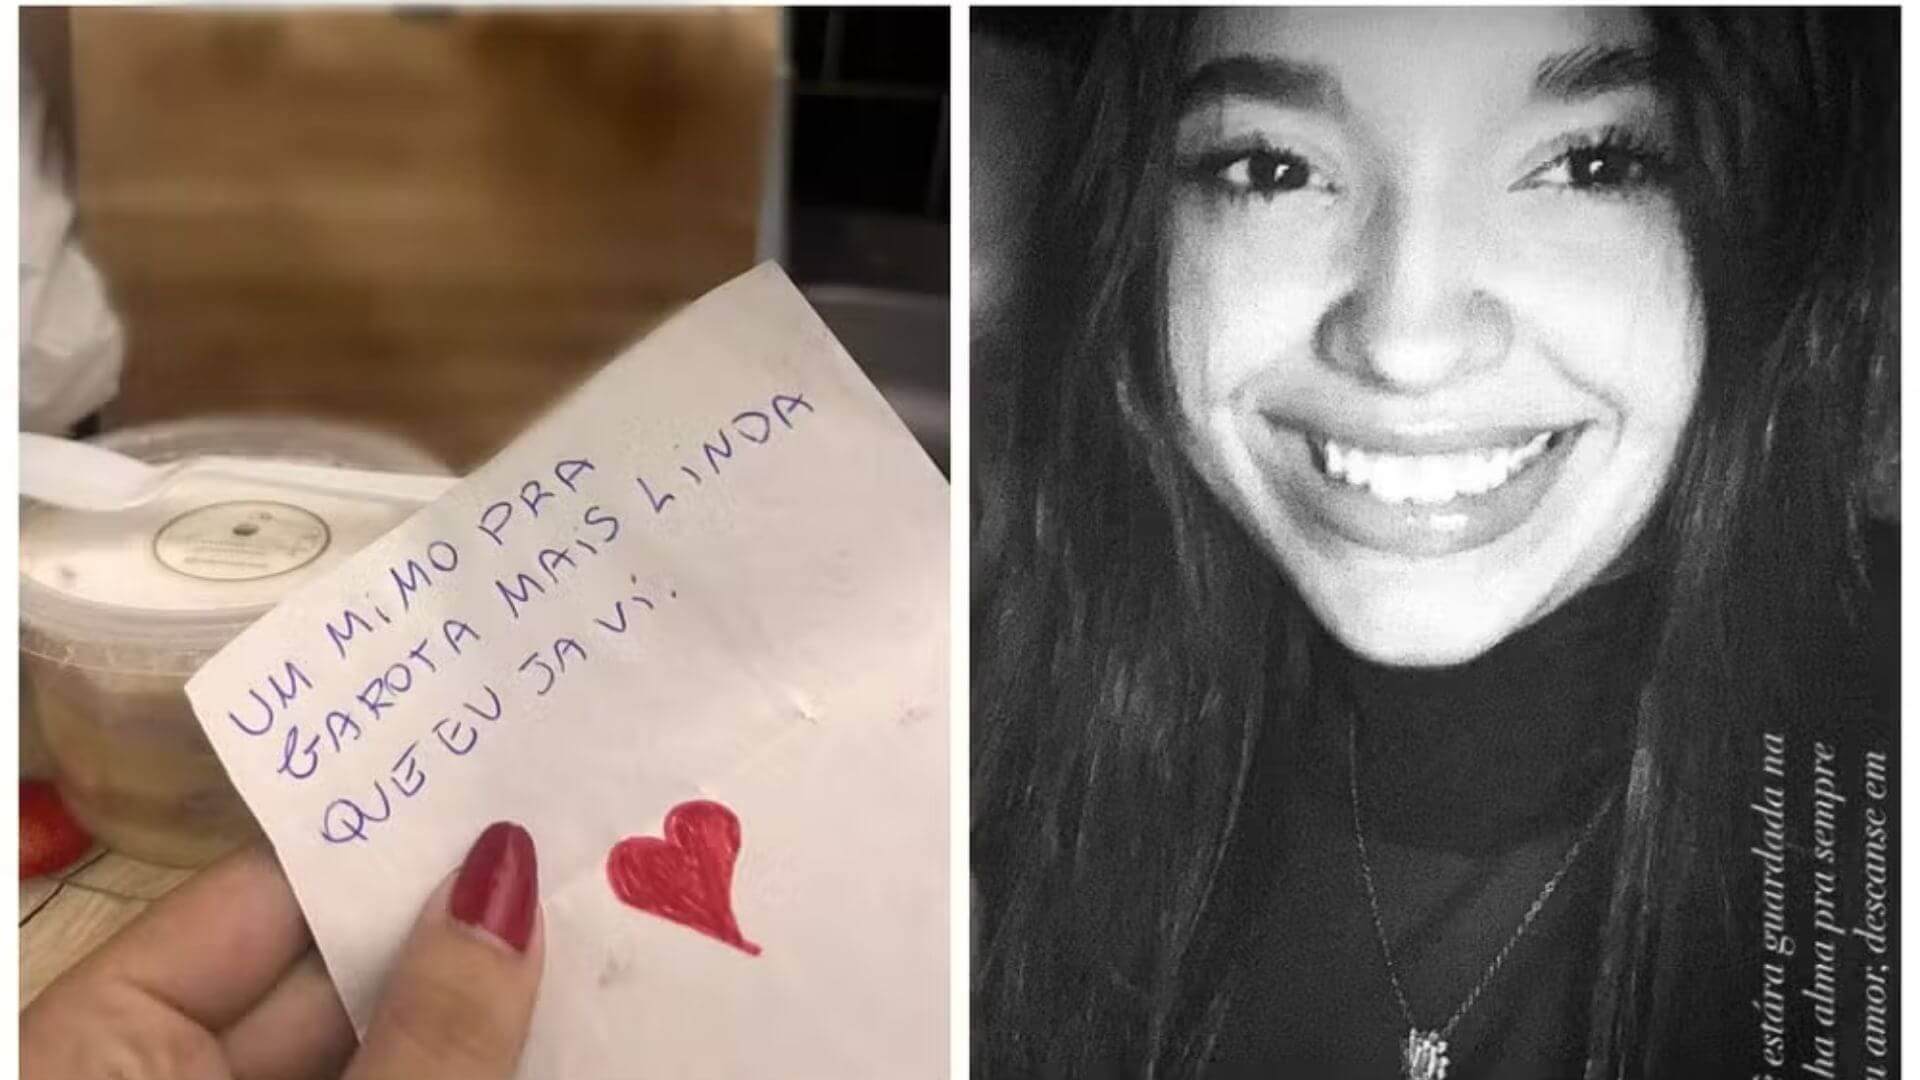 UM MiMO PRA
GAROTA MAiS LiNDA
QUE EU JA Vi.
estára guardada na
ha alma pra sempre
amor, descanse em